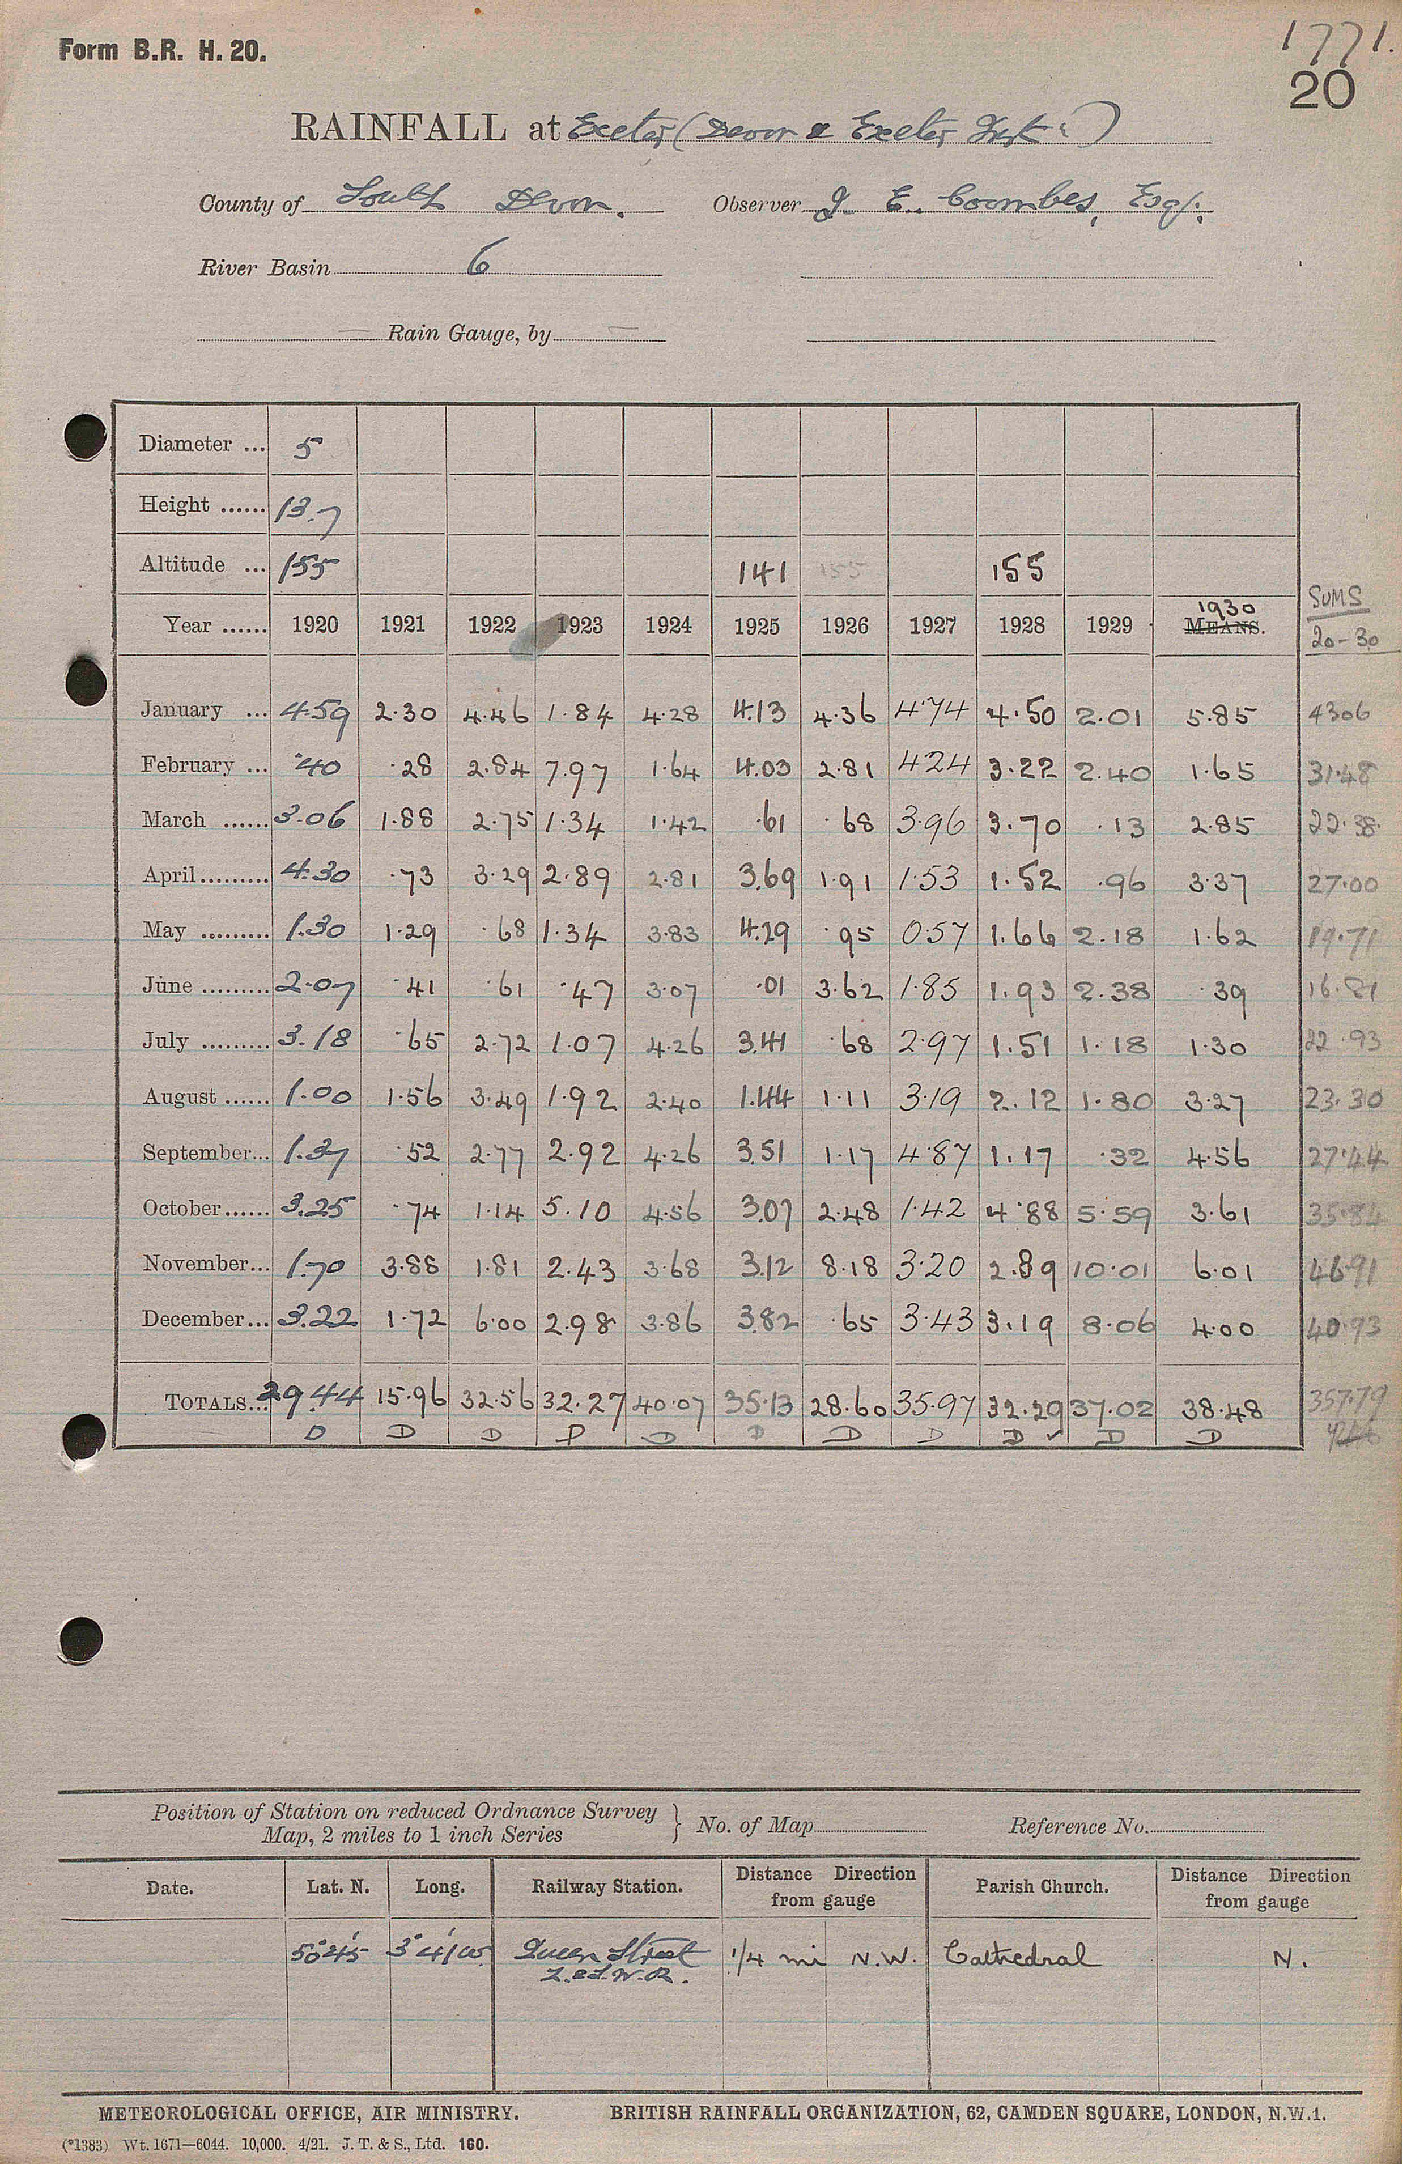 Form B.R. H. 20.
1771.
20
RAINFALL at Exeter (Devon & Exeter Inst:)
County of South Devon. Observer J. E. Coombes, Esq.
River Basin 6
Rain Gauge, by
Diameter ... 5
Height ...... 13.7
Altitude ... 155 141 155 155
Year ...... 1920 1921 1922 1923 1924 1925 1926 1927 1928 1929 1930 MEANS. SUMS 20-30
January ... 4.59 2.30 4.46 1.84 4.28 4.13 4.36 4.74 4.50 2.01 5.85 4306
February ... .40 .28 2.84 7.97 1.64 4.03 2.81 4.24 3.22 2.40 1.65 31.48
March ...... 3.06 1.88 2.75 1.34 1.42 .61 .68 3.96 3.70 .13 2.85 22.38
April ......... 4.30 .73 3.29 2.89 2.81 3.69 1.91 1.53 1.52 .96 3.37 27.00
May ......... 1.30 1.29 .68 1.34 3.83 4.29 .95 0.57 1.66 2.18 1.62 19.71
June ......... 2.07 .41 .61 .47 3.07 .01 3.62 1.85 1.93 2.38 .39 16.81
July ......... 3.18 .65 2.72 1.07 4.26 3.41 .68 2.97 1.51 1.18 1.30 22.93
August ...... 1.00 1.56 3.49 1.92 2.40 1.44 1.11 3.19 2.12 1.80 3.27 23.30
September... 1.37 .52 2.77 2.92 4.26 3.51 1.17 4.87 1.17 .32 4.56 27.44
October ...... 3.25 .74 1.14 5.10 4.56 3.07 2.48 1.42 4.88 5.59 3.61 35.84
November... 1.70 3.88 1.81 2.43 3.68 3.12 8.18 3.20 2.89 10.01 6.01 46.91
December ... 3.22 1.72 6.00 2.98 3.86 3.82 .65 3.43 3.19 8.06 4.00 40.93
TOTALS... 29.44 15.96 32.56 32.27 40.07 35.13 28.60 35.97 32.29 37.02 38.48 357.79
D D D D D D D D D D D
Position of Station on reduced Ordnance Survey Map, 2 miles to 1 inch Series } No. of Map Reference No.
Date. Lat. N. Long. Railway Station. Distance Direction from gauge Parish Church. Distance Direction from gauge
50°45' 3°41'W Queen Street 1/4 mi N.W. Cathedral N.
L. & S. W. R.
METEOROLOGICAL OFFICE, AIR MINISTRY. BRITISH RAINFALL ORGANIZATION, 62, CAMDEN SQUARE, LONDON, N.W.1.
(*1383) Wt. 1671—6044. 10,000. 4/21. J. T. & S., Ltd. 160.